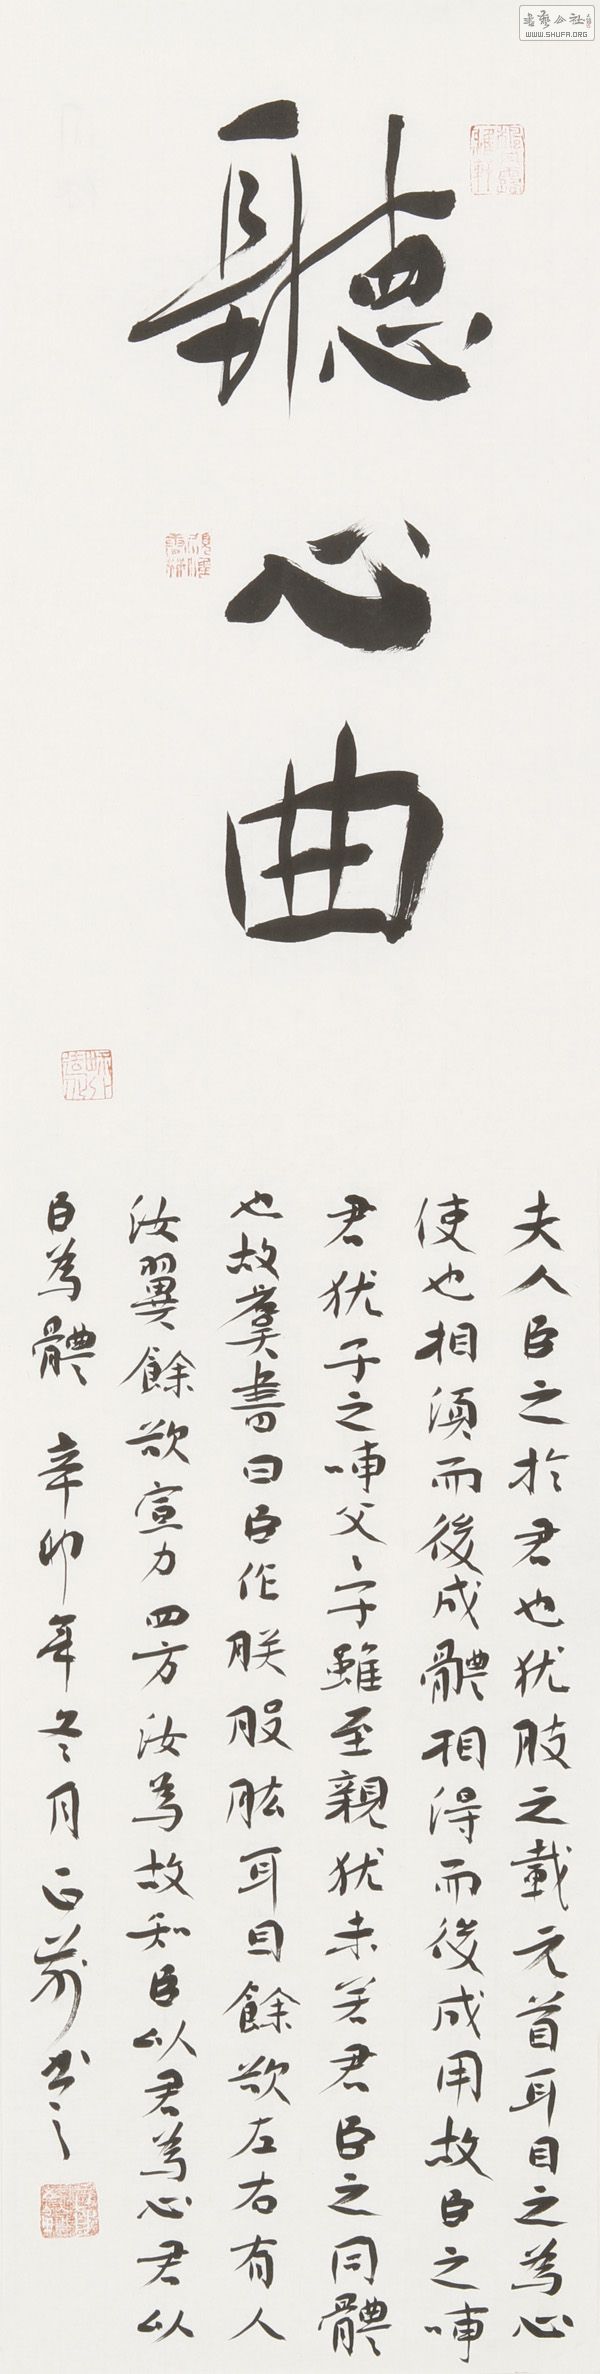 書藝公社
WWW.SHUFA.ORG
聽心曲
夫人臣之於君也犹肢之載元首耳目之為心
使也相須而後成體相得而後成用故臣之事
君犹子之事父〻子雖至親犹未若君臣之同體
也故羣書曰臣作朕股肱耳目餘欲左右有人
汝翼餘欲宣力四方汝為故知臣以君為心君以
臣為體 辛卯年冬月 書之